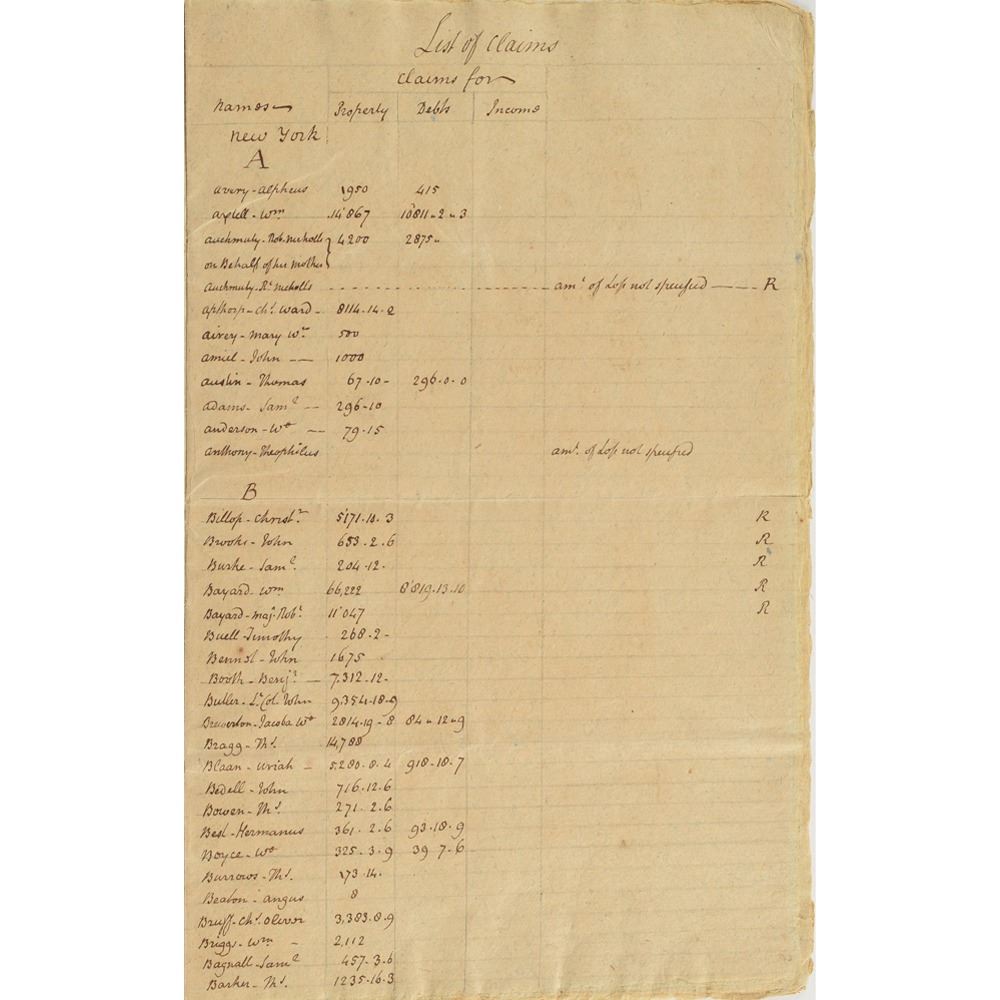 List of Claims
Claims for
Names Property Debts Income
New York
A
Avery - Alpheus 1950 415
Axtell - Wm 14'867 10'811 - 2 - 3
Auchmuty - Rob. Nicholls 4200 2875 "
on Behalf of his Mother
Auchmuty - Rt. Nicholls amt. of Loss not specified R
Apthorp - Chs. Ward - 8114 - 14 - 2
Airey - Mary Wr. 500
Amiel - John 1000
Austin - Thomas 67 - 10 - 296 - 0 - 0
Adams - Saml 296 - 10
Anderson - Wm 79 - 15
Anthony - Theophilus amt. of Loss not specified
B
Billop - Christr. 5'171 . 18 . 3 R
Brooks - John 653 . 2 . 6 R
Burke - Saml. 204 . 12 - R
Bayard - Wm 66,222 8'819 . 13 . 10 R
Bayard - Maj. Robt. 11'047 R
Buell - Timothy 268 . 2 -
Bennet - John 1675
Booth - Benjn. 7.312 . 12 -
Butler - Lt. Col. John 9.354 - 18 - 9
Brewerton - Jacoba Wo 2814 - 19 - 8 84 " 12 " 9
Bragg - Ths. 14,788
Blaan - Uriah - 5.280 . 8 . 4 918 - 18 . 7
Bedell - John 716 . 12 . 6
Bowen - Ths. 271 . 2 . 6
Best - Hermanus 361 . 2 . 6 93 . 18 . 9
Boyce - Wm 325 . 3 . 9 39 7 . 6
Burrows - Ths. 173 . 14 .
Beaton - Angus 8
Bruff - Chs. Oliver 3.383 . 8 . 9
Briggs - Wm - 2,112
Bagnall - Saml 457 . 3 . 6
Barker - Ths. 1235 . 16 . 3